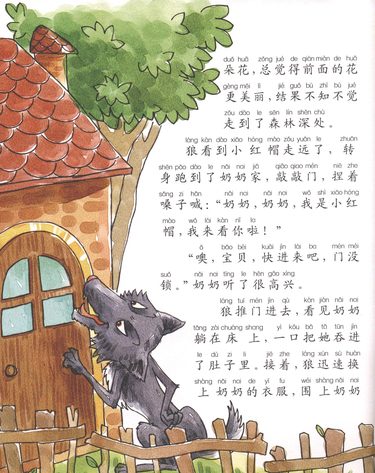 duǒ huā zǒng jué de qián miàn de huā
朵花，总觉得前面的花
gèng měi lì jié guǒ bù zhī bù jué
更美丽，结果不知不觉
zǒu dào le sēn lín shēn chù
走到了森林深处。
láng kàn dào xiǎo hóng mào zǒu yuǎn le zhuǎn
狼看到小红帽走远了，转
shēn pǎo dào le nǎi nai jiā qiāo qiao mén niē zhe
身跑到了奶奶家，敲敲门，捏着
sǎng zi hǎn nǎi nai nǎi nai wǒ shì xiǎo hóng
嗓子喊：“奶奶，奶奶，我是小红
mào wǒ lái kàn nǐ la
帽，我来看你啦！”
ō bǎo bèi kuài jìn lái ba mén méi
“噢，宝贝，快进来吧，门没
suǒ nǎi nai tīng le hěn gāo xìng
锁。”奶奶听了很高兴。
láng tuī mén jìn qù kàn jiàn nǎi nai
狼推门进去，看见奶奶
tǎng zài chuáng shang yì kǒu bǎ tā tūn jìn
躺在床上，一口把她吞进
le dù zi lǐ jiē zhe láng xùn sù huàn
了肚子里。接着，狼迅速换
shàng nǎi nai de yī fu wéi shàng nǎi nai
上奶奶的衣服，围上奶奶